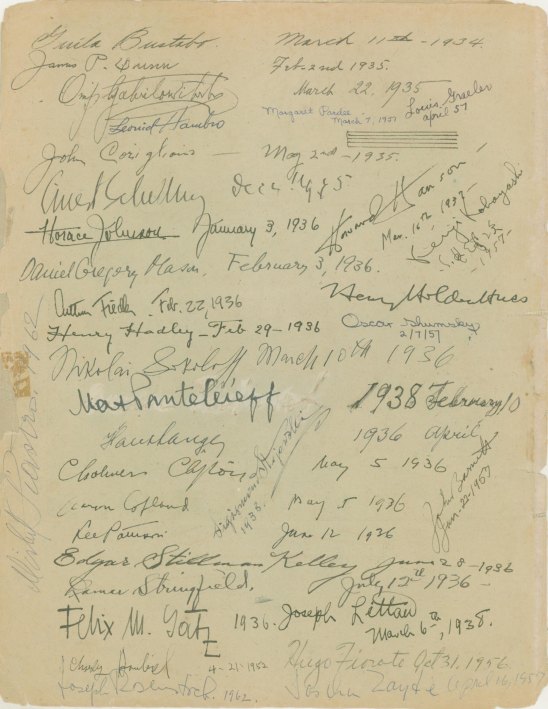 Guila Bustabo. March 11th - 1934.
James P. Dunn Feb 2nd 1935.
Ossip Gabrilowitsch March 22, 1935
Margaret Pardee
March 7, 1957
Louis Graeler
april 57
Leonid Hambro
John Corigliano - May 2nd - 1935.
Ernest Schelling Dec 1935
Howard Hanson
Mar. 16th 1937
Kenji Kobayashi
1957
Horace Johnson January 3, 1936
Daniel Gregory Mason. February 3, 1936.
Henry Holden Huss
Arthur Fiedler. Feb. 22, 1936
Henry Hadley - Feb 29 - 1936
Oscar Shumsky
2/7/57
Nikolai Sokoloff March 10th 1936
Max Panteleieff 1938 February 10
Hans Lange 1936 April
Sigismond Stojowski
1938.
Chalmers Clifton May 5 1936
John Barnett
Jan-22-1957
Aaron Copland May 5 1936
Lee Pattison June 12 1936
Mishel Piastro, 1962
Edgar Stillman Kelley June 28 - 1936
Lamar Stringfield. July 12th 1936 -
Felix M. Gatz 1936. Joseph Littau
March 6th, 1938.
4-21-1952 Hugo Fiorato Oct 31. 1956.
Joseph Rosenstock. 1962. April 16, 1957